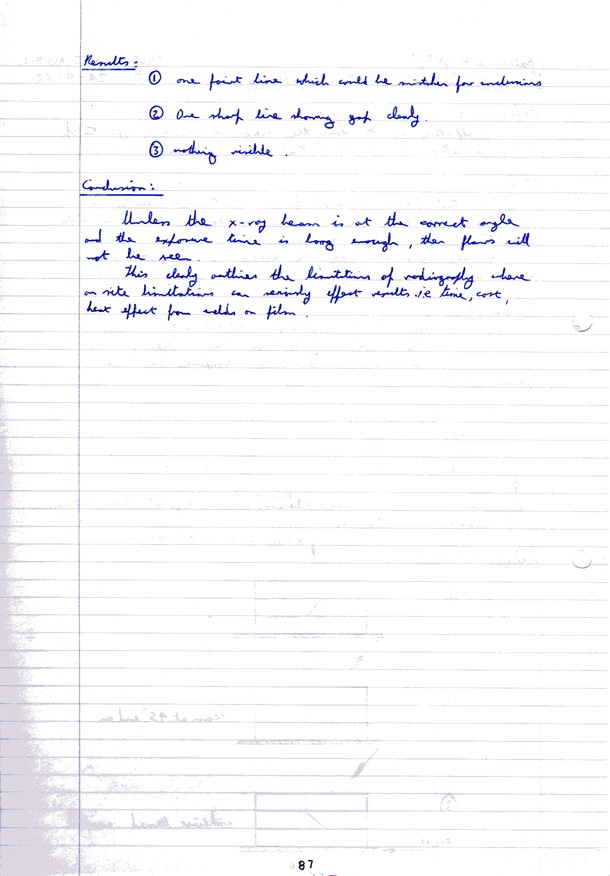 Results:
① one faint line which could be mistaken for inclusions
② One sharp line showing gap clearly.
③ nothing visible.
Conclusion:
Unless the x-ray beam is at the correct angle
and the exposure time is long enough, then flaws will
not be seen.
This clearly outlines the limitations of radiography where
on site limitations can seriously effect results. i.e time, cost,
heat effect from welds on film.
87